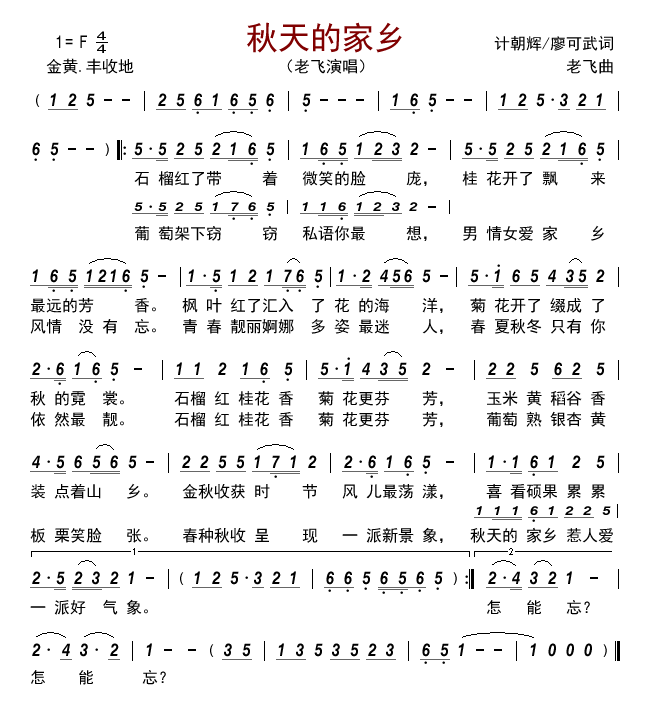 秋天的家乡
1= F 4/4
计朝辉/廖可武词
金黄.丰收地
（老飞演唱）
老飞曲
( 1 2 5 - - | 2 5 6 1 6 5 6 | 5 - - - | 1 6 5 - - | 1 2 5·3 2 1 |
6 5 - - ) ‖: 5·5 2 5 2 1 6 5 | 1 6 5 1 2 3 2 - | 5·5 2 5 2 1 6 5 |
石 榴红了带 着 微笑的脸 庞， 桂 花开了 飘 来
5·5 2 5 1 7 6 5 | 1 1 6 1 2 3 2 - |
葡 萄架下窃 窃 私语你最 想， 男 情女爱 家 乡
1 6 5 1 2 1 6 5 - | 1·5 1 2 1 7 6 5 | 1·2 4 5 6 5 - | 5·1 6 5 4 3 5 2 |
最远的芳 香。 枫 叶 红了汇入 了 花 的海 洋， 菊 花开了 缀成 了
风情 没 有 忘。 青 春 靓丽婀娜 多 姿 最迷 人， 春 夏秋冬 只有 你
2·6 1 6 5 - | 1 1 2 1 6 5 | 5·1 4 3 5 2 - | 2 2 5 6 2 5 |
秋 的霓 裳。 石榴 红 桂花 香 菊 花更芬 芳， 玉米 黄 稻谷 香
依 然最 靓。 石榴 红 桂花 香 菊 花更芬 芳， 葡萄 熟 银杏 黄
4·5 6 5 6 5 - | 2 2 5 5 1 7 1 2 | 2·6 1 6 5 - | 1·1 6 1 2 5 |
装 点着山 乡。 金秋收获 时 节 风 儿最荡 漾， 喜 看硕果 累 累
1 1 1 6 1 2 2 5 |
板 栗笑脸 张。 春种秋收 呈 现 一 派新景 象， 秋天的 家乡 惹人爱
1 2
2·5 2 3 2 1 - | ( 1 2 5·3 2 1 | 6 6 5 6 5 6 5 ) :‖ 2·4 3 2 1 - |
一 派好 气 象。 怎 能 忘？
2·4 3·2 | 1 - - ( 3 5 | 1 3 5 3 5 2 3 | 6 5 1 - - | 1 0 0 0 ) ‖
怎 能 忘？